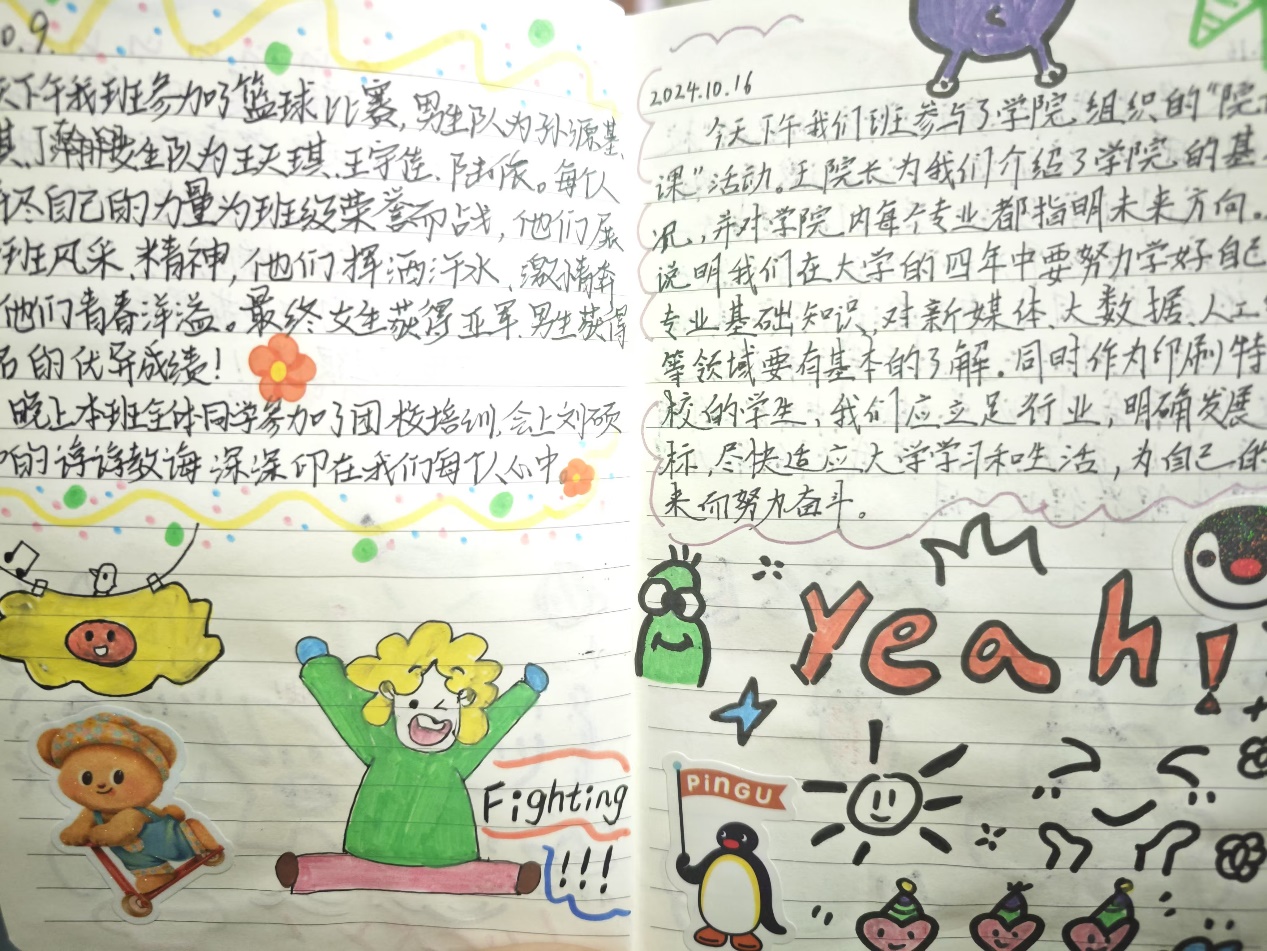 0.9.
天下午我班参加了篮球比赛,男生队为孙源基、
琪、丁瀚翔,女生队为王天琪、王宇佳、陆依。每个人
尽自己的力量为班级荣誉而占战,他们展
班风采、精神,他们挥洒汗水、激情奔
他们青春洋溢。最终女生获得亚军,男生获得
名的优异成绩!
晚上本班全体同学参加了团校培训,会上刘硕
的谆谆教诲深深印在我们每个人心中
Fighting
!!!
2024.10.16
今天下午我们班参与了学院组织的“院
课”活动。王院长为我们介绍了学院的基
况,并对学院内每个专业都指明未来方向。
说明我们在大学的四年中要努力学好自己
专业基础知识、对新媒体、大数据、人工
等领域要有基本的了解。同时作为印刷特
校的学生,我们应立足行业,明确发展
标,尽快适应大学学习和生活,为自己的
来而努力奋斗。
Yeah!
PINGU